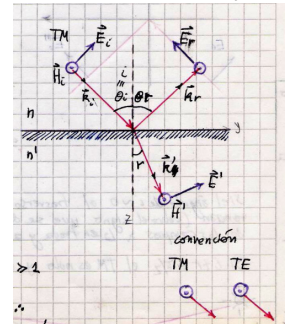 TM E⃗i E⃗r
H⃗i
k⃗i i θi θr k⃗r
n
y
n'
r k⃗'
E⃗'
H⃗'
z
convención
≫1 TM TE
∴